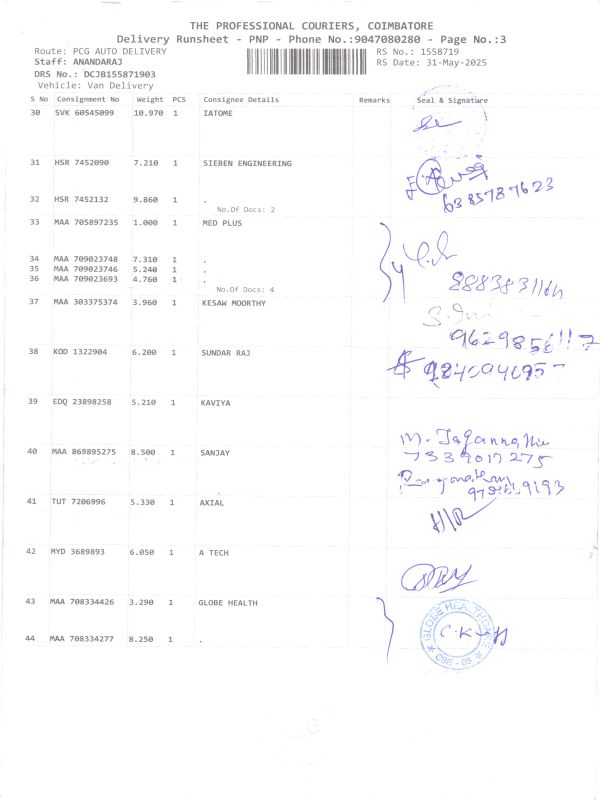 THE PROFESSIONAL COURIERS, COIMBATORE
Delivery Runsheet - PNP - Phone No.:9047080280 - Page No.:3
Route: PCG AUTO DELIVERY RS No.: 1558719
Staff: ANANDARAJ RS Date: 31-May-2025
DRS No.: DCJB155871903
Vehicle: Van Delivery
S No Consignment No Weight PCS Consignee Details Remarks Seal & Signature
30 SVK 60545099 10.970 1 IATOME
31 HSR 7452090 7.210 1 SIEBEN ENGINEERING
6385787623
32 HSR 7452132 9.860 1 .
No.Of Docs: 2
33 MAA 705897235 1.000 1 MED PLUS
34 MAA 709023748 7.310 1 .
35 MAA 709023746 5.240 1 .
36 MAA 709023693 4.760 1 .
No.Of Docs: 4
37 MAA 303375374 3.960 1 KESAW MOORTHY
38 KOD 1322904 6.200 1 SUNDAR RAJ
39 EDQ 23898258 5.210 1 KAVIYA
7339017275
40 MAA 869895275 8.500 1 SANJAY
41 TUT 7206996 5.330 1 AXIAL
42 MYD 3689893 6.050 1 A TECH
43 MAA 708334426 3.290 1 GLOBE HEALTH
GLOBE HEALTHCARE
CBE - 05
44 MAA 708334277 8.250 1 .